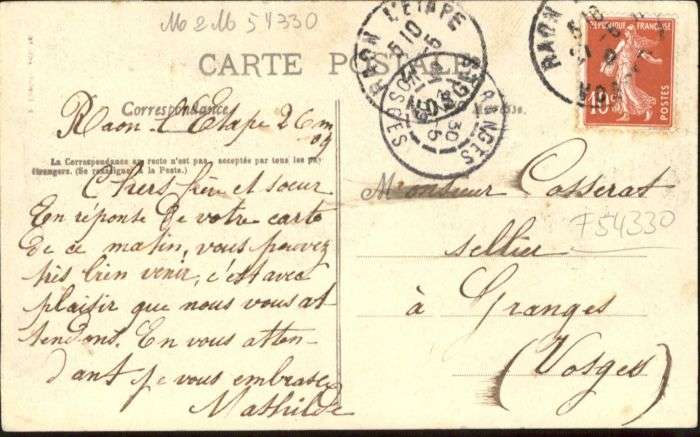 M & M 54330
CARTE POSTALE
RAON L'ETAPE
VOSGES
GRANGES
VOSGES
RAON
REPUBLIQUE FRANÇAISE
10
POSTES
Correspondance
Raon-l'Etape
La Correspondance au recto n'est pas acceptée par tous les pays
étrangers. (Se renseigner à la Poste.)
Chers frère et soeur
En réponse de votre carte
de ce matin, vous pouvez
très bien venir, c'est avec
plaisir que nous vous at
tendons. En vous atten-
dant je vous embrasse
Mathilde
Monsieur Cosserat
sellier
à Granges
(Vosges)
F54330